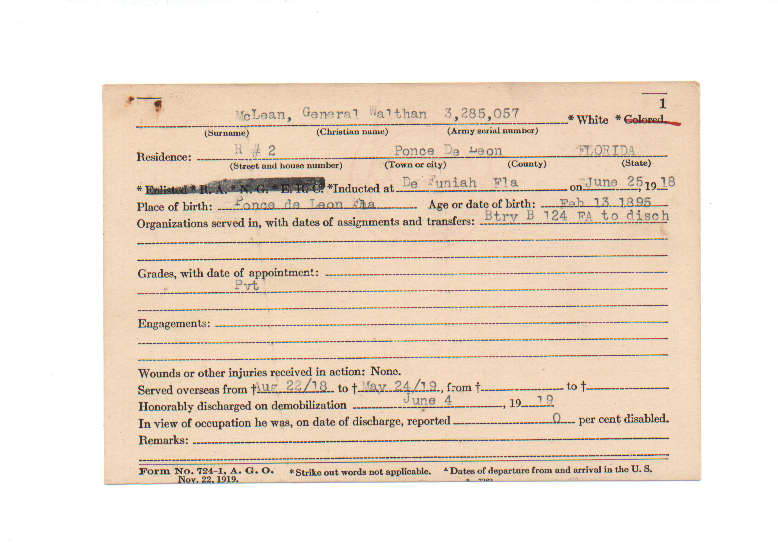 1
McLean, General Walthan 3,285,057 *White *Colored.
(Surname) (Christian name) (Army serial number)
Residence: R # 2 Ponce De Leon FLORIDA
(Street and house number) (Town or city) (County) (State)
* Enlisted * R. A. * N. G. * E. R. C. *Inducted at De Funiah Fla on June 25, 1918
Place of birth: Ponce de Leon Fla Age or date of birth: Feb 13 1895
Organizations served in, with dates of assignments and transfers: Btry B 124 FA to disch
Grades, with date of appointment:
Pvt
Engagements:
Wounds or other injuries received in action: None.
Served overseas from † Aug 22/18 to † May 24/19, from † to †
Honorably discharged on demobilization June 4, 19 19
In view of occupation he was, on date of discharge, reported 0 per cent disabled.
Remarks:
Form No. 724-1, A. G. O. *Strike out words not applicable. Dates of departure from and arrival in the U. S.
Nov. 22, 1919.